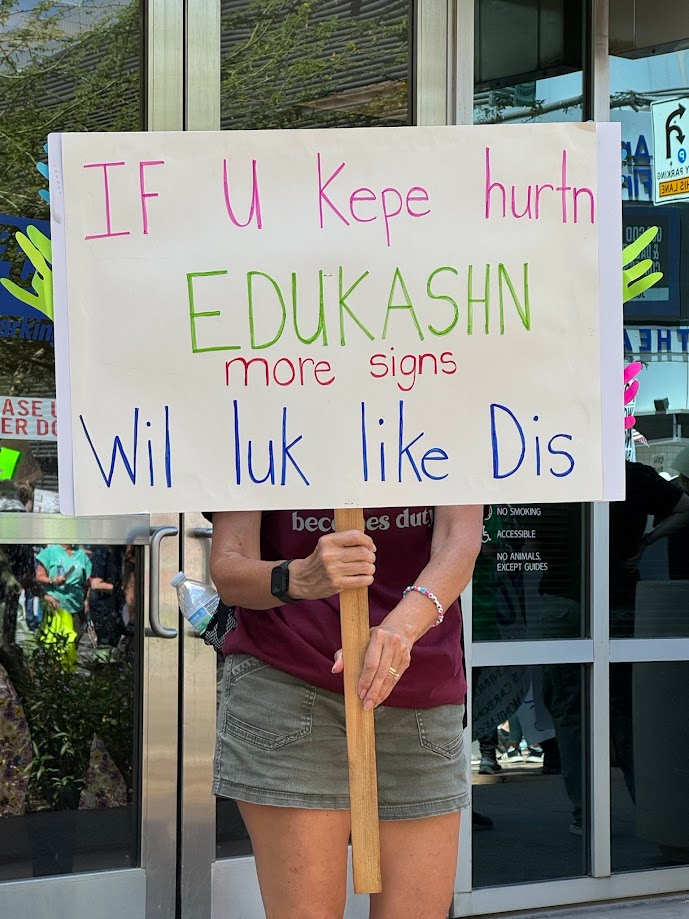 IF U Kepe hurtn
EDUKASHN
more signs
Wil luk like Dis
duty
NO SMOKING
ACCESSIBLE
NO ANIMALS,
EXCEPT GUIDES